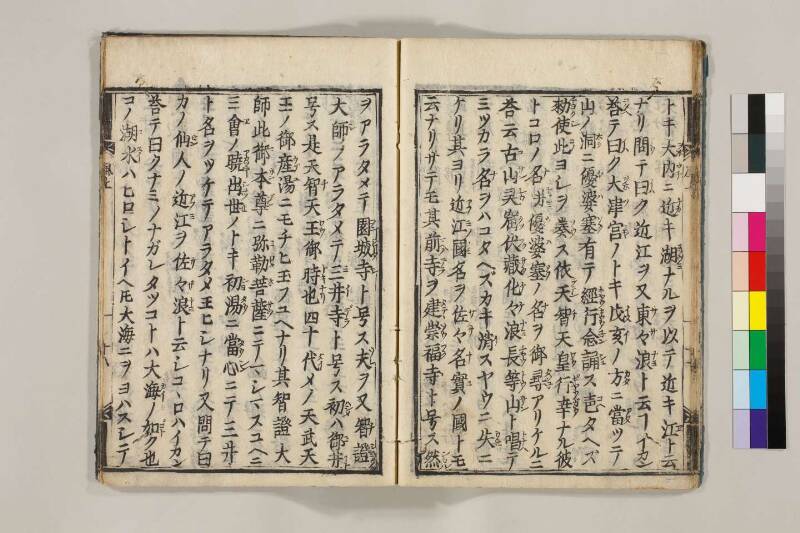 トキ大内ニ近キ湖ナルヲ以テ近キ江ト云
ナリ問テ曰ク近江ヲ又東々浪ト云ーイカン
答テ曰ク大津宮ノトキ戊亥ノ方ニ當ツテ
山ノ洞ニ優婆塞有テ經行念誦ス壱タヘズ
勅使此ヨシヲ奏ス依天智天皇行幸ナル彼
トコロノ名并優婆塞ノ名ヲ御尋アリケルニ
答云古山灵窟伏蔵化々浪長等山ト唱テ
ミツカラ名ヲハコタヘズカキ消スヤウニ失ニ
ケリ其ヨリ近江國名ヲ佐々名實ノ國トモ
云ナリサテモ其前寺ヲ建崇福寺ト号ス然
ヲアラタメテ園城寺ト号ス夫ヲ又智證
大師ノアラタメテ三井寺ト号ス初ハ御井
号ス是天智天王御時也四十代メノ天武天
王ノ御産湯ニモチヒ玉フユヘナリ其智證大
師此御本尊ニ弥勒菩薩ニテ
三會ノ暁出世ノトキ初湯ニ當心ニテ三井
ト名ヲツケテアラタメ玉ヒシナリ又問テ曰
カノ仙人ノ近江ヲ佐々浪ト云シコヽロハイカン
答テ曰クナミノナガレタツコトハ大海ノ如ク也
コノ湖水ハヒロシトイヘ𪜈大海ニヲヨハスシテ